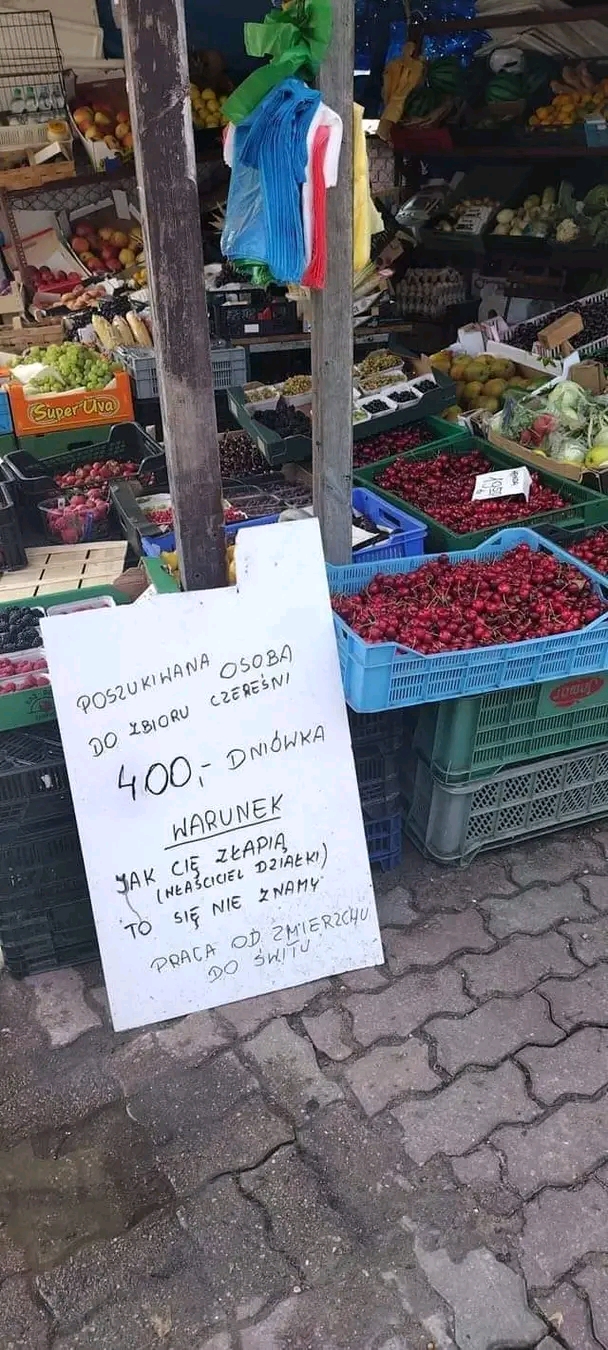 Super Uva
POSZUKIWANA OSOBA
DO ZBIORU CZEREŚNI
400,- DNIÓWKA
WARUNEK
JAK CIĘ ZŁAPIĄ
(WŁAŚCICIEL DZIAŁKI)
TO SIĘ NIE ZNAMY
PRACA OD ZMIERZCHU
DO ŚWITU